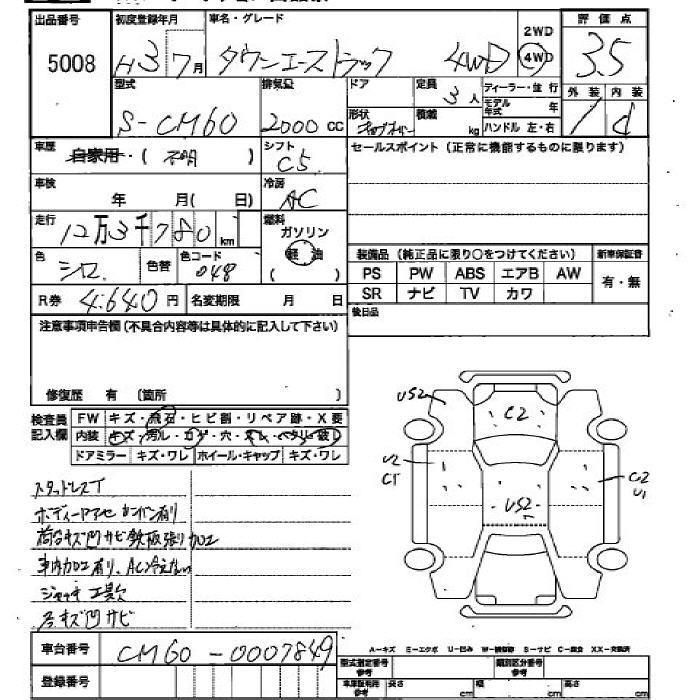 出品番号 初度登録年月 車名・グレード 2WD 評価点
5008 H3 7月 タウンエーストラック 4WD 4WD 3.5
型式 排気量 ドア 定員 3人 ディーラー・並行 外装 内装
S-CM60 2000cc 形状 積載 kg モデル年式 年 ハンドル 左・右 1 d
車歴 自家用・( 不明 ) シフト C5 セールスポイント(正常に機能するものに限ります)
車検 年 月( 日) 冷房 AC
走行 12万3千780km 燃料 ガソリン 軽油 ( )
色 シロ 色替 色コード 048
装備品 (純正品に限り○をつけてください) 新車保証書
PS PW ABS エアB AW 有・無
SR ナビ TV カワ
R券 4.640円 名変期限 月 日
後日品
注意事項申告欄(不具合内容等は具体的に記入して下さい)
修復歴 有 (箇所 )
検査員記入欄 FW キズ・飛石・ヒビ割・リペア跡・X要
内装 キズ・汚ル・コゲ・穴・スレ・ベタリ・破レ
ドアミラー キズ・ワレ ホイール・キャップ キズ・ワレ
US2 C2
U2 C1 US2 C2 U1
スタッドレスT
ボディーアセ カンバン有り
荷台キズ凹サビ鉄板張り加工
車内加工有り、AC冷えない
ジャッキ工具欠
各キズ凹サビ
車台番号 CM60-0007849
A-キズ E-エクボ U-凹み W-補修跡 S-サビ C-腐食 XX-交換済
登録番号
型式指定番号参考 類別区分番号参考
車庫証明用参考 長さ cm 幅 cm 高さ cm